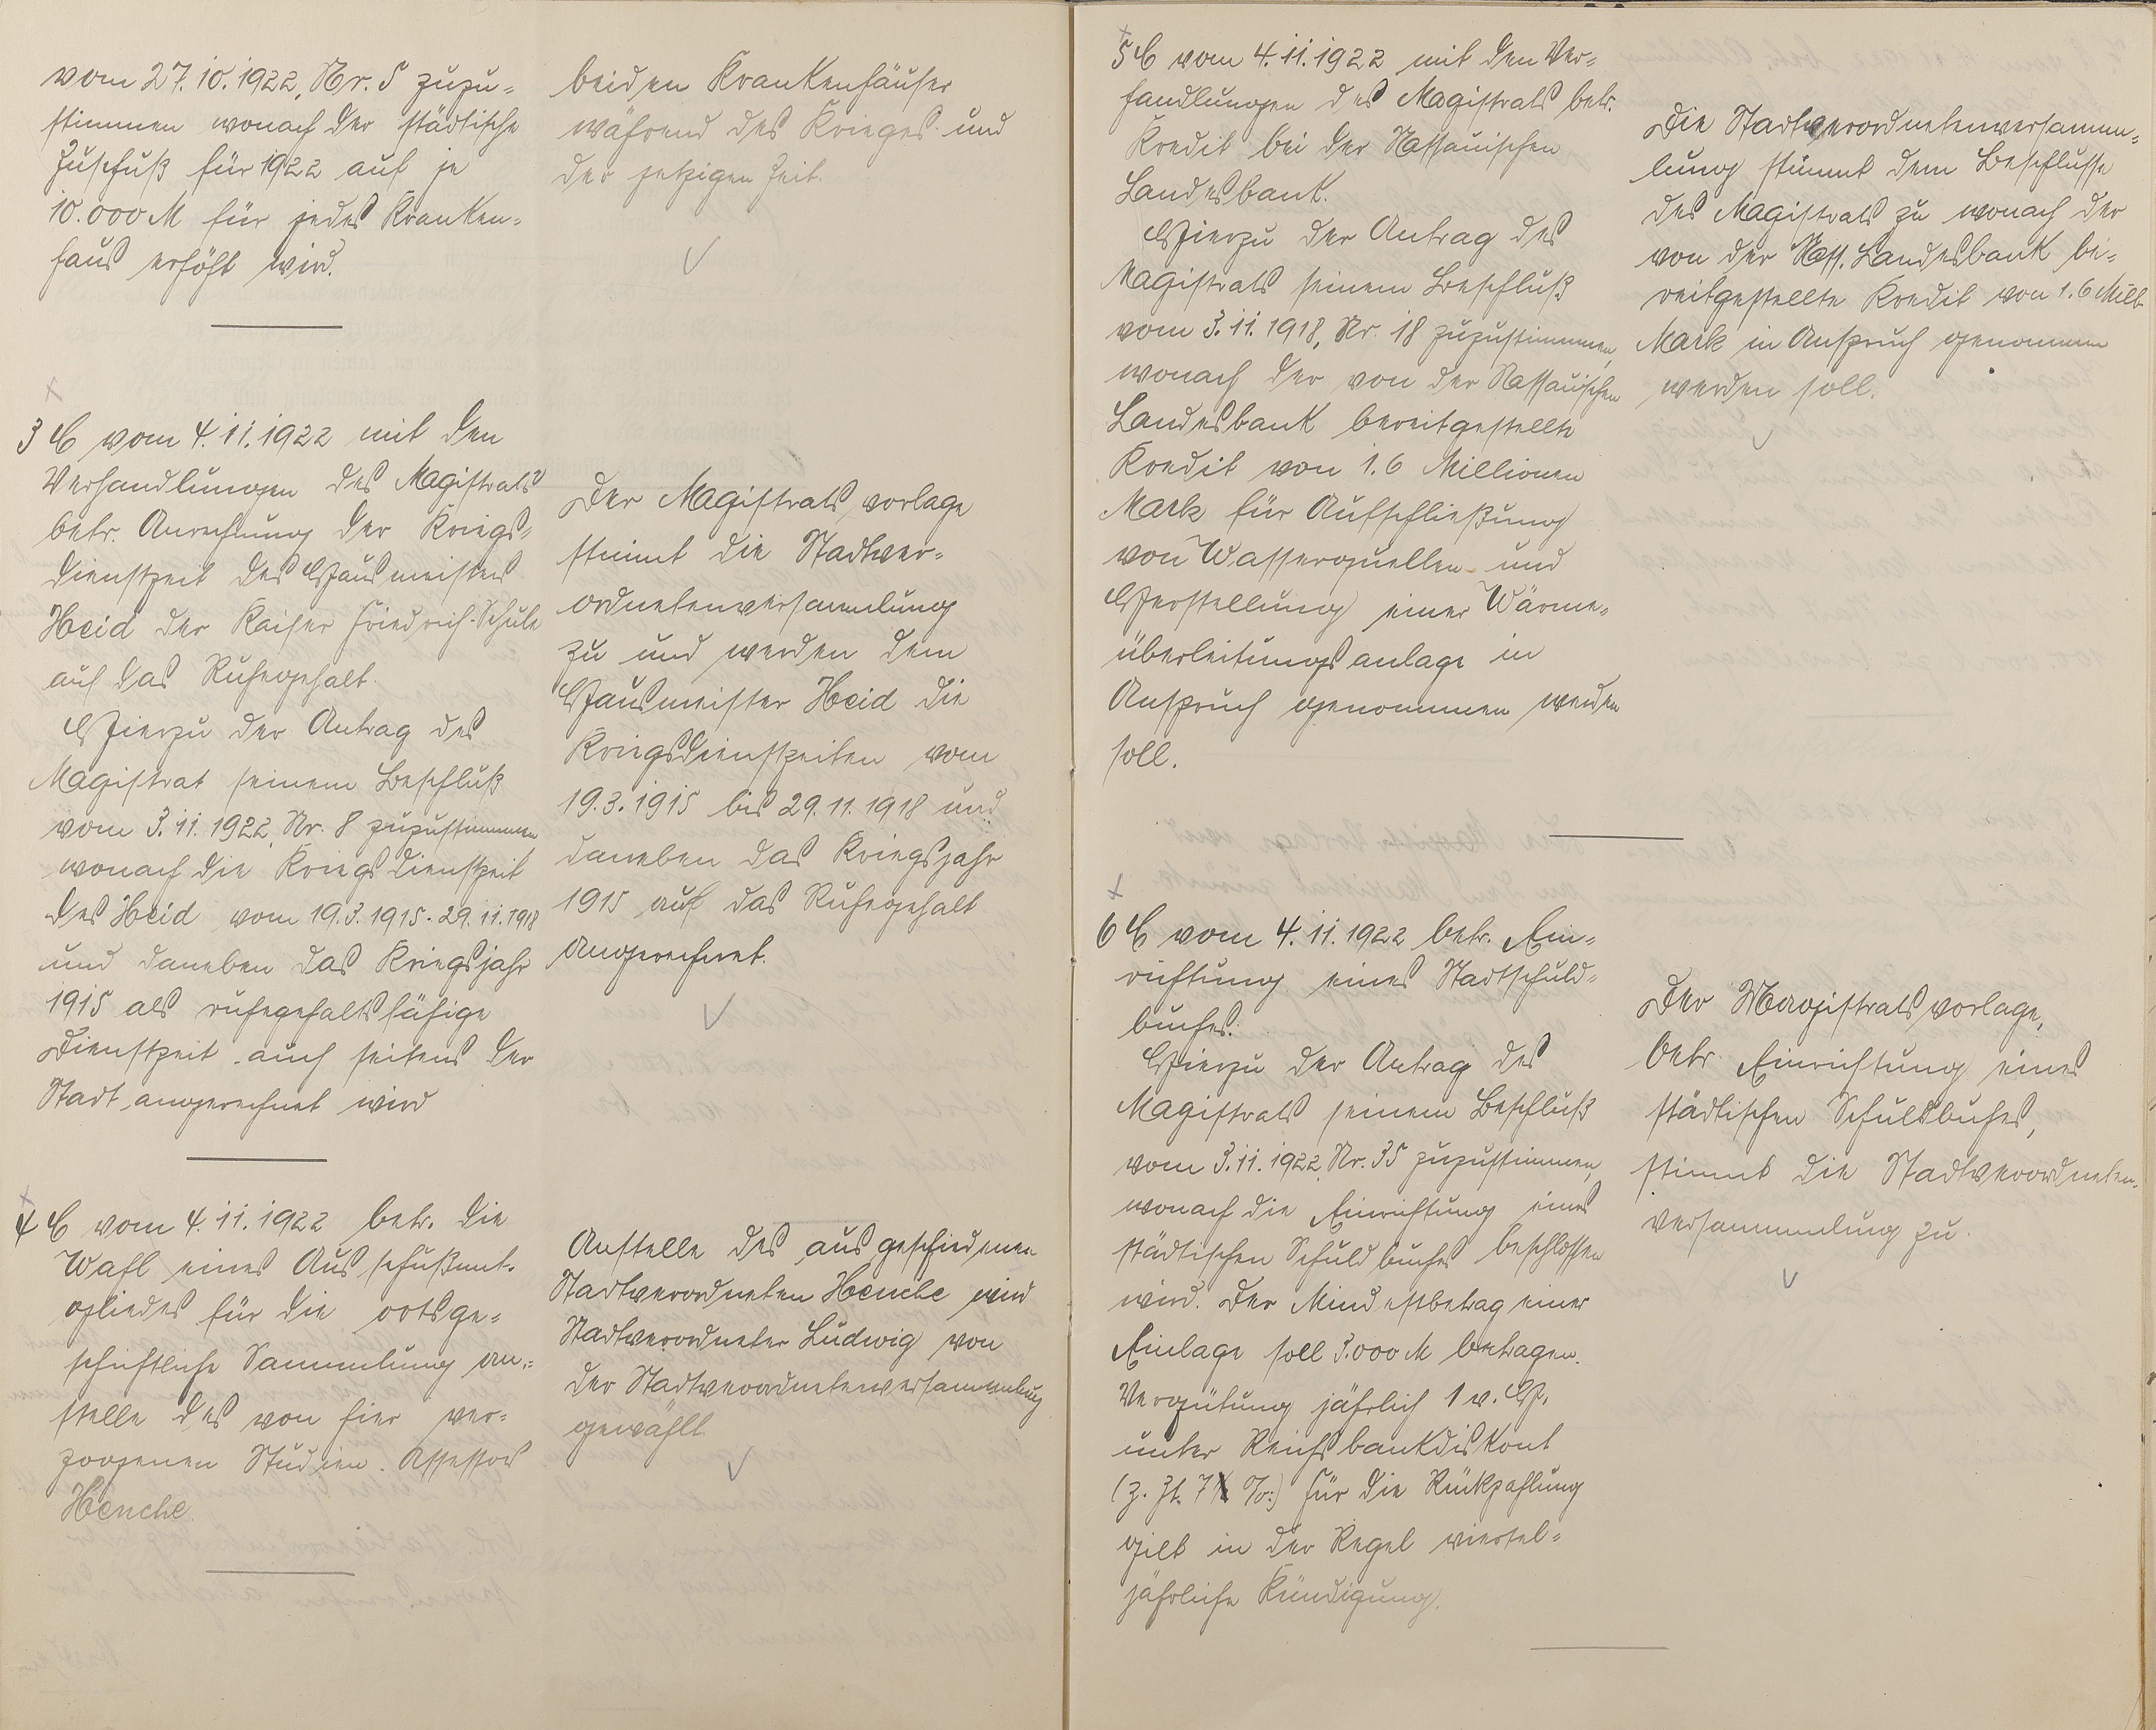 vom 27.10.1922, Nr. 5 zuzu=
stimmen wonach der städtische
Zuschuß für 1922 auf je
10.000 M für jedes Kranken=
haus erhöht wird.
3 C vom 4.11.1922 mit den
Verhandlungen des Magistrats
betr. Anrechnung der Kriegs=
dienstzeit des Hausmeisters
Heid der Kaiser Friedrich-Schule
auf das Ruhegehalt.
Hierzu der Antrag des
Magistrat seinem Beschluß
vom 3.11.1922, Nr. 8 zuzustimmen
wonach die Kriegsdienstzeit
des Heid vom 19.3.1915-29.11.1918
und daneben das Kriegsjahr
1915 als ruhegehaltsfähige
Dienstzeit auch seitens der
Stadt angerechnet wird
4 C vom 4.11.1922 betr. die
Wahl eines Ausschußmit-
gliedes für die ortsge=
schichtliche Sammlung an=
stelle des von hier ver=
zogenen Studien-Assessors
Henche.
beiden Krankenhäuser
während des Krieges und
der jetzigen Zeit.
Der Magistratsvorlage
stimmt die Stadtver=
ordnetenversammlung
zu und werden dem
Hausmeister Heid die
Kriegsdienstzeiten vom
19.3.1915 bis 29.11.1918 und
daneben das Kriegsjahr
1915 auf das Ruhegehalt
angerechnet.
Anstelle des ausgeschiedenen
Stadtverordneten Henche wird
Stadtverordneter Ludwig von
der Stadtverordnetenversammlung
gewählt
5 C vom 4.11.1922 mit den Ver=
handlungen des Magistrats betr.
Kredit bei der Nassauischen
Landesbank.
Hierzu der Antrag des
Magistrats seinem Beschluß
vom 3.11.1918, Nr. 18 zuzustimmen,
wonach der von der Nassauischen
Landesbank bereitgestellte
Kredit von 1.6 Millionen
Mark für Aufschließung
von Wasserquellen und
Herstellung einer Wärme=
überleitungsanlage in
Anspruch genommen werden
soll.
6 C vom 4.11.1922 betr. Ein=
richtung eines Stadtschuld=
buches.
Hierzu der Antrag des
Magistrats seinem Beschluß
vom 3.11.1922, Nr. 35 zuzustimmen,
wonach die Einrichtung eines
städtischen Schuldbuches beschlossen
wird. Der Mindestbetrag einer
Einlage soll 3.000 M betragen.
Vergütung jährlich 1 v. H.
unter Reichsbankdiskont
(z. Zt. 7 %:) Für die Rückzahlung
gilt in der Regel viertel=
jährliche Kündigung.
Die Stadtverordnetenversamm=
lung stimmt dem Beschlusse
des Magistrats zu wonach der
von der Nass. Landesbank be=
reitgestellte Kredit von 1.6 Mill.
Mark in Anspruch genommen
werden soll.
Der Magistratsvorlage,
betr. Einrichtung eines
städtischen Schuldbuches,
stimmt die Stadtverordneten-
versammlung zu.